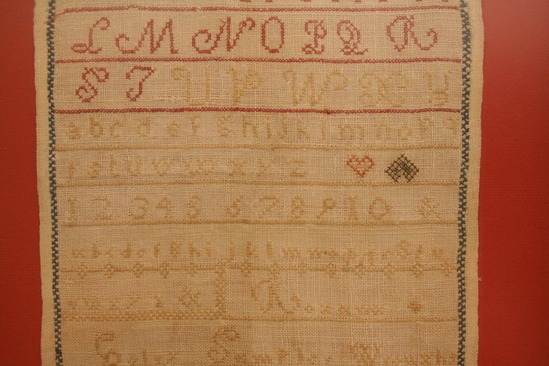 L M N O P Q R
S T U V W X Y
a b c d e f g h i j k l m n o p q
r s t u v w x y z
1 2 3 4 5 6 7 8 9 10 &
a b c d e f g h i j k l m n o p q r s t u
v w x y z & Roxana
Sampler